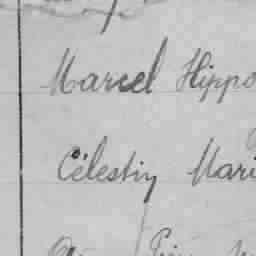 Marcel Hippo
Célestin Mari